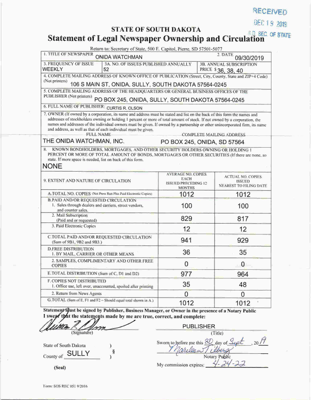 RECEIVED
DEC 19 2019
SEC. OF STATE
STATE OF SOUTH DAKOTA
Statement of Legal Newspaper Ownership and Circulation
Return to: Secretary of State, 500 E. Capitol, Pierre, SD 57501-5077
1. TITLE OF NEWSPAPER
ONIDA WATCHMAN
2. DATE
09/30/2019
3. FREQUENCY OF ISSUE
WEEKLY
3A. NO. OF ISSUES PUBLISHED ANNUALLY
52
3B. ANNUAL SUBSCRIPTION
PRICE $ 36, 38, 40
4. COMPLETE MAILING ADDRESS OF KNOWN OFFICE OF PUBLICATION (Street, City, County, State and ZIP+4 Code)
(Not printers)
106 S MAIN ST, ONIDA, SULLY, SOUTH DAKOTA 57564-0245
5. COMPLETE MAILING ADDRESS OF THE HEADQUARTERS OR GENERAL BUSINESS OFFICES OF THE
PUBLISHER (Not printers)
PO BOX 245, ONIDA, SULLY, SOUTH DAKOTA 57564-0245
6. FULL NAME OF PUBLISHER: CURTIS R. OLSON
7. OWNER (If owned by a corporation, its name and address must be stated and list on the back of this form the names and
addresses of stockholders owning or holding 1 percent or more of total amount of stock. If not owned by a corporation, the
names and addresses of the individual owners must be given. If owned by a partnership or other unincorporated firm, its name
and address, as well as that of each individual must be given.
FULL NAME
COMPLETE MAILING ADDRESS
THE ONIDA WATCHMAN, INC.
PO BOX 245, ONIDA, SD 57564
8. KNOWN BONDHOLDERS, MORTGAGES, AND OTHER SECURITY HOLDERS OWNING OR HOLDING 1
PERCENT OR MORE OF TOTAL AMOUNT OF BONDS, MORTGAGES OR OTHER SECURITIES (If there are none, so
state. If more space is needed, list on back of this form.
NONE
9. EXTENT AND NATURE OF CIRCULATION
AVERAGE NO. COPIES
EACH
ISSUE PRECEDING 12
MONTHS
ACTUAL NO. COPIES
ISSUED
NEAREST TO FILING DATE
A. TOTAL NO. COPIES (Net Press Run Plus Paid Electronic Copies)
1012
1012
B. PAID AND/OR REQUESTED CIRCULATION
1. Sales through dealers and carriers, street vendors,
and counter sales.
100
100
2. Mail Subscription
(Paid and or requested)
829
817
3. Paid Electronic Copies
12
12
C. TOTAL PAID AND/OR REQUESTED CIRCULATION
(Sum of 9B1, 9B2 and 9B3.)
941
929
D. FREE DISTRIBUTION
1. BY MAIL, CARRIER OR OTHER MEANS
36
35
2. SAMPLES, COMPLIMENTARY AND OTHER FREE
COPIES
0
0
E. TOTAL DISTRIBUTION (Sum of C, D1 and D2)
977
964
F. COPIES NOT DISTRIBUTED
1. Office use, left over, unaccounted, spoiled after printing
35
48
2. Return from News Agents
0
0
G. TOTAL (Sum of E, F1 and F2 – Should equal total shown in A.)
1012
1012
Statement must be signed by Publisher, Business Manager, or Owner in the presence of a Notary Public
I swear that the statements made by me are true, correct, and complete:
PUBLISHER
(Signature)
(Title)
State of South Dakota )
County of SULLY ) §
Sworn to before me this 30 day of Sept, 2019
Notary Public
(Seal)
My commission expires: 4-24-22
Form: SOS REC 051 9/2016